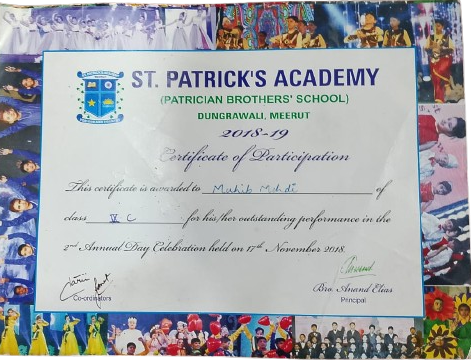 ST. PATRICK'S ACADEMY
(PATRICIAN BROTHERS' SCHOOL)
DUNGRAWALI, MEERUT
2018-19
Certificate of Participation
This certificate is awarded to Muhib Mehdi of
class V C for his/her outstanding performance in the
2nd Annual Day Celebration held on 17th November 2018.
Co-ordinators
Bro. Anand Elias
Principal